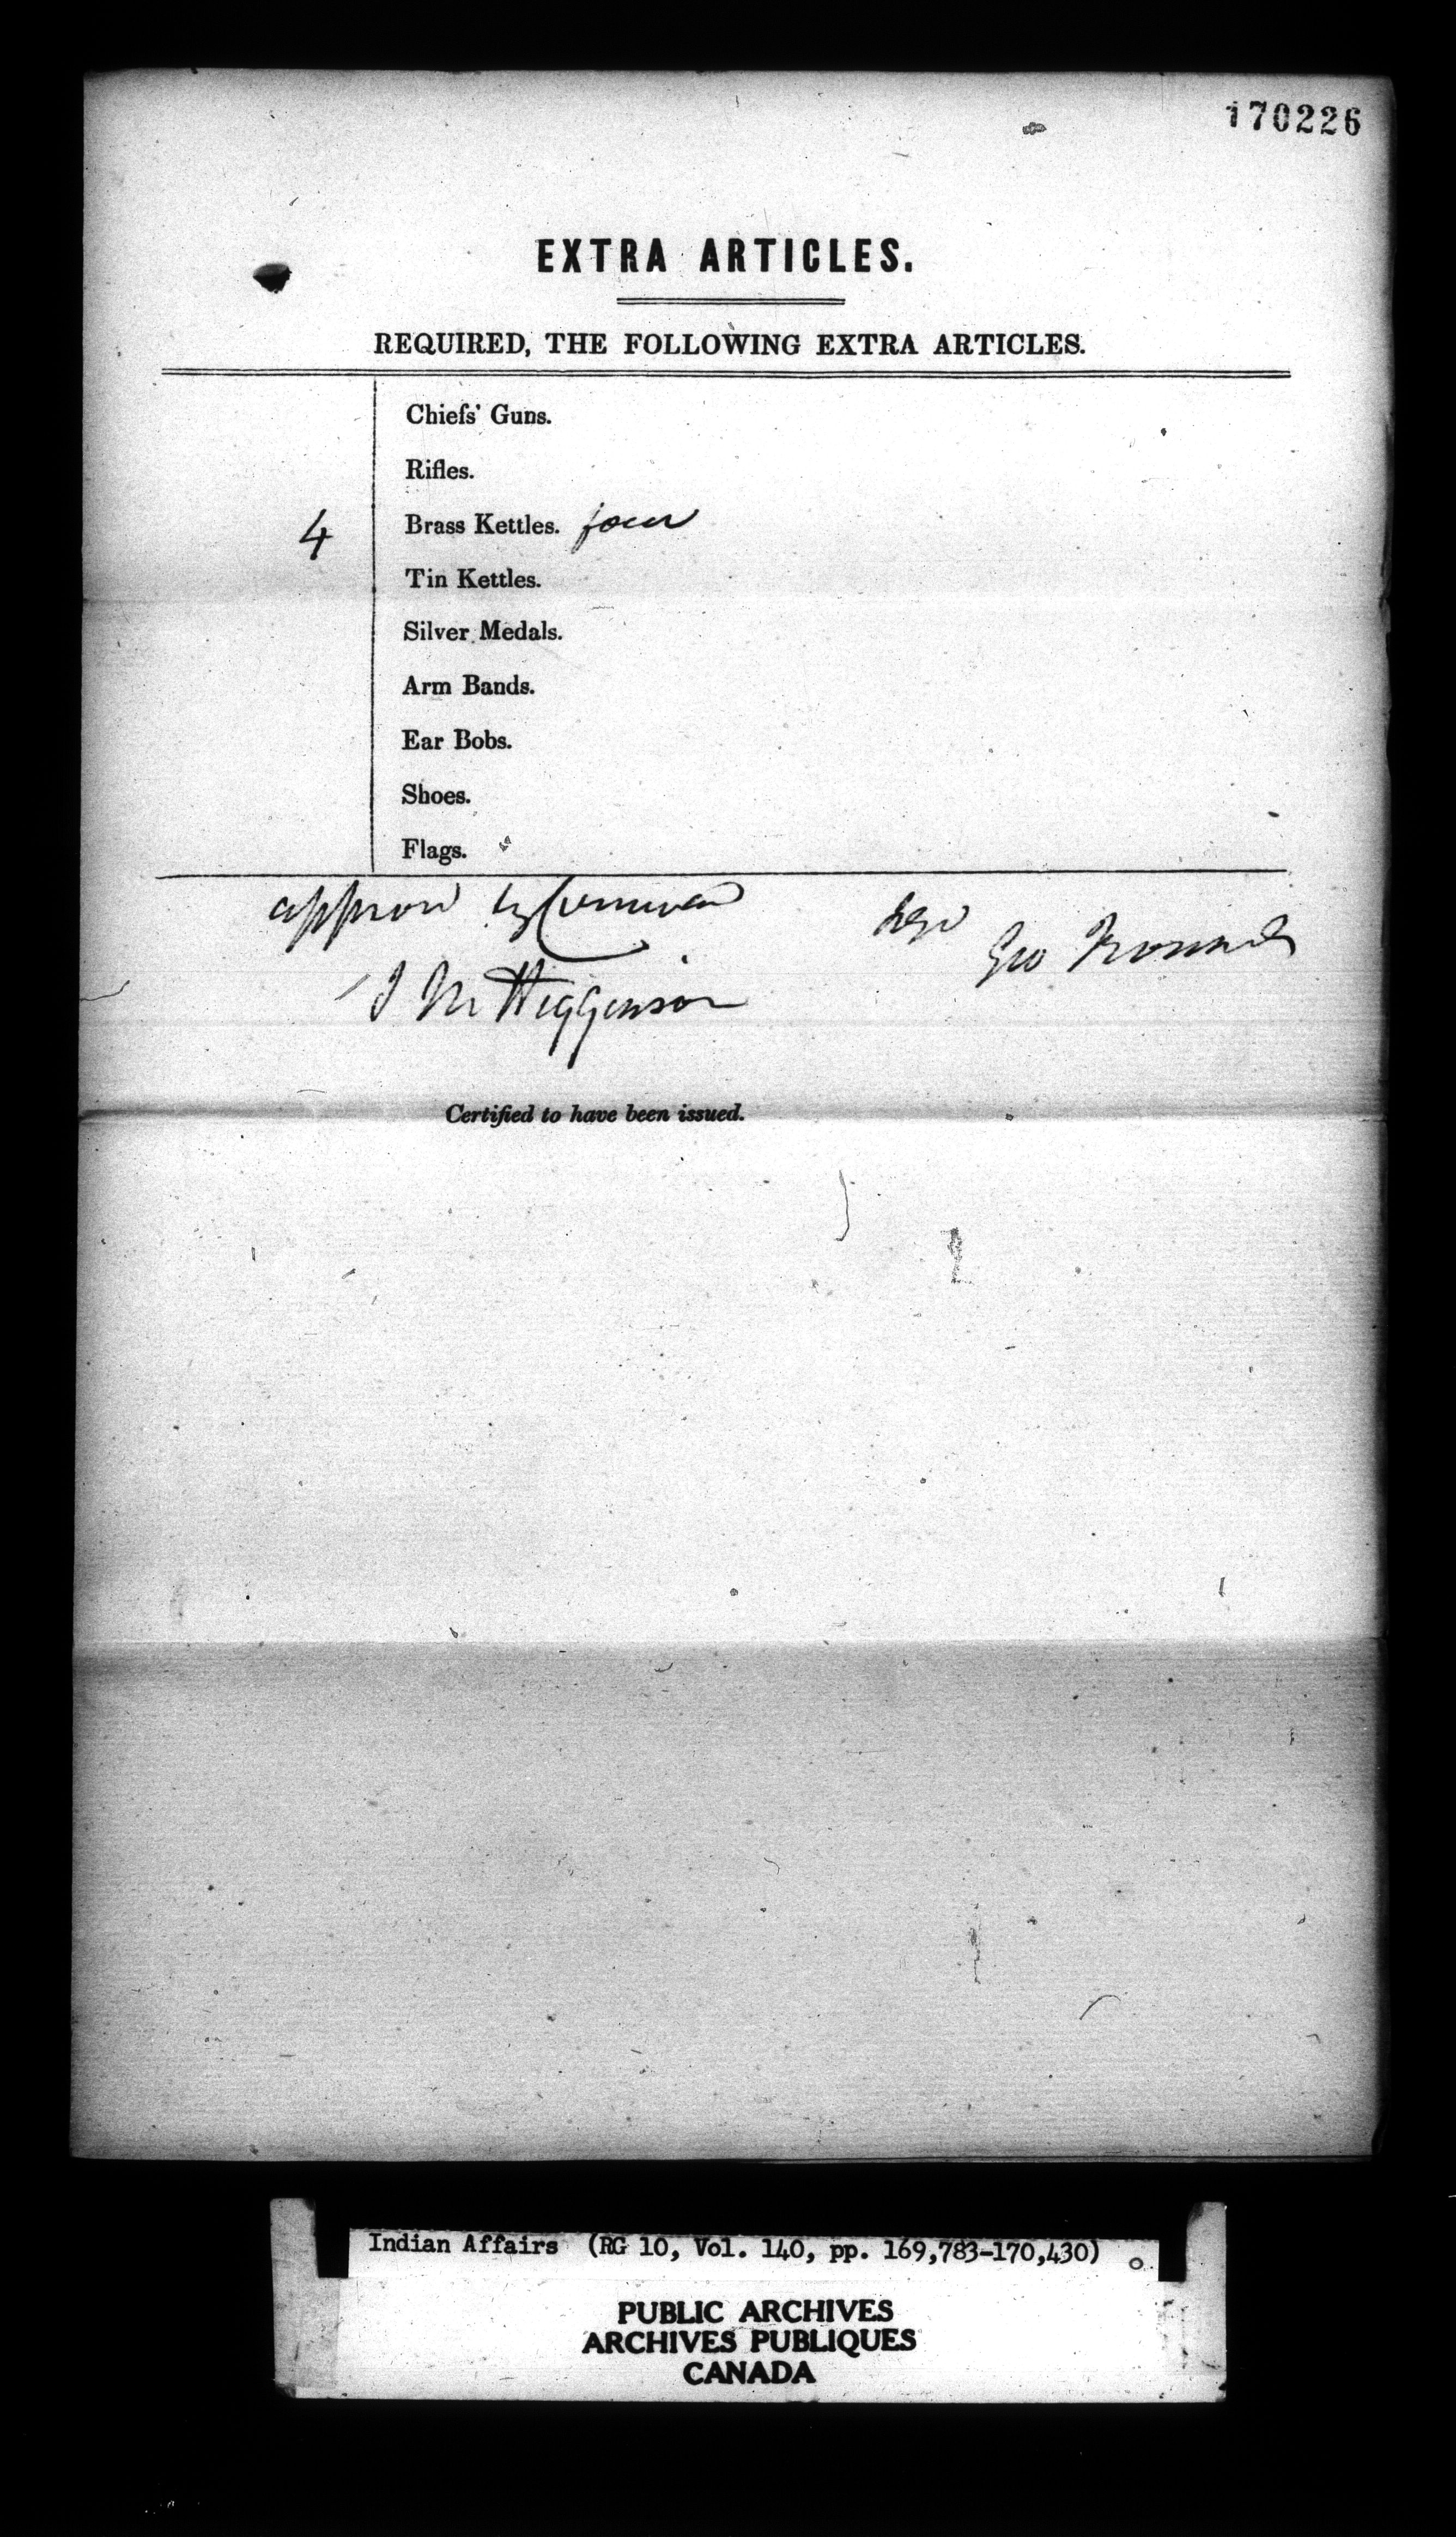 170226
EXTRA ARTICLES.
REQUIRED, THE FOLLOWING EXTRA ARTICLES.
Chiefs' Guns.
Rifles.
4 Brass Kettles. four
Tin Kettles.
Silver Medals.
Arm Bands.
Ear Bobs.
Shoes.
Flags.
approved by Command
J M Higginson
Geo
Certified to have been issued.
Indian Affairs (RG 10, Vol. 140, pp. 169,783-170,430)
PUBLIC ARCHIVES
ARCHIVES PUBLIQUES
CANADA